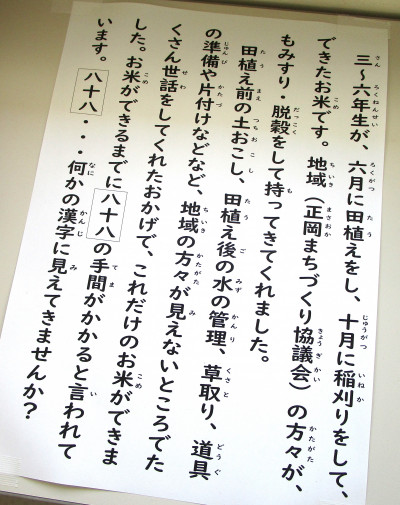 三～六年生が、六月に田植えをし、十月に稲刈りをして、
できたお米です。地域（正岡まちづくり協議会）の方々が、
もみすり・脱穀をして持ってきてくれました。
田植え前の土おこし、田植え後の水の管理、草取り、道具
の準備や片付けなどなど、地域の方々が見えないところでた
くさん世話をしてくれたおかげで、これだけのお米ができま
した。お米ができるまでに八十八の手間がかかると言われて
います。八十八・・・何かの漢字に見えてきませんか？